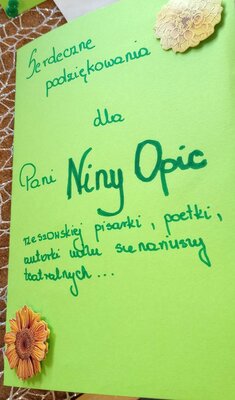 Serdeczne
podziękowania
dla
Pani Niny Opic
rzeszowskiej pisarki, poetki,
autorki wielu scenariuszy
teatralnych...